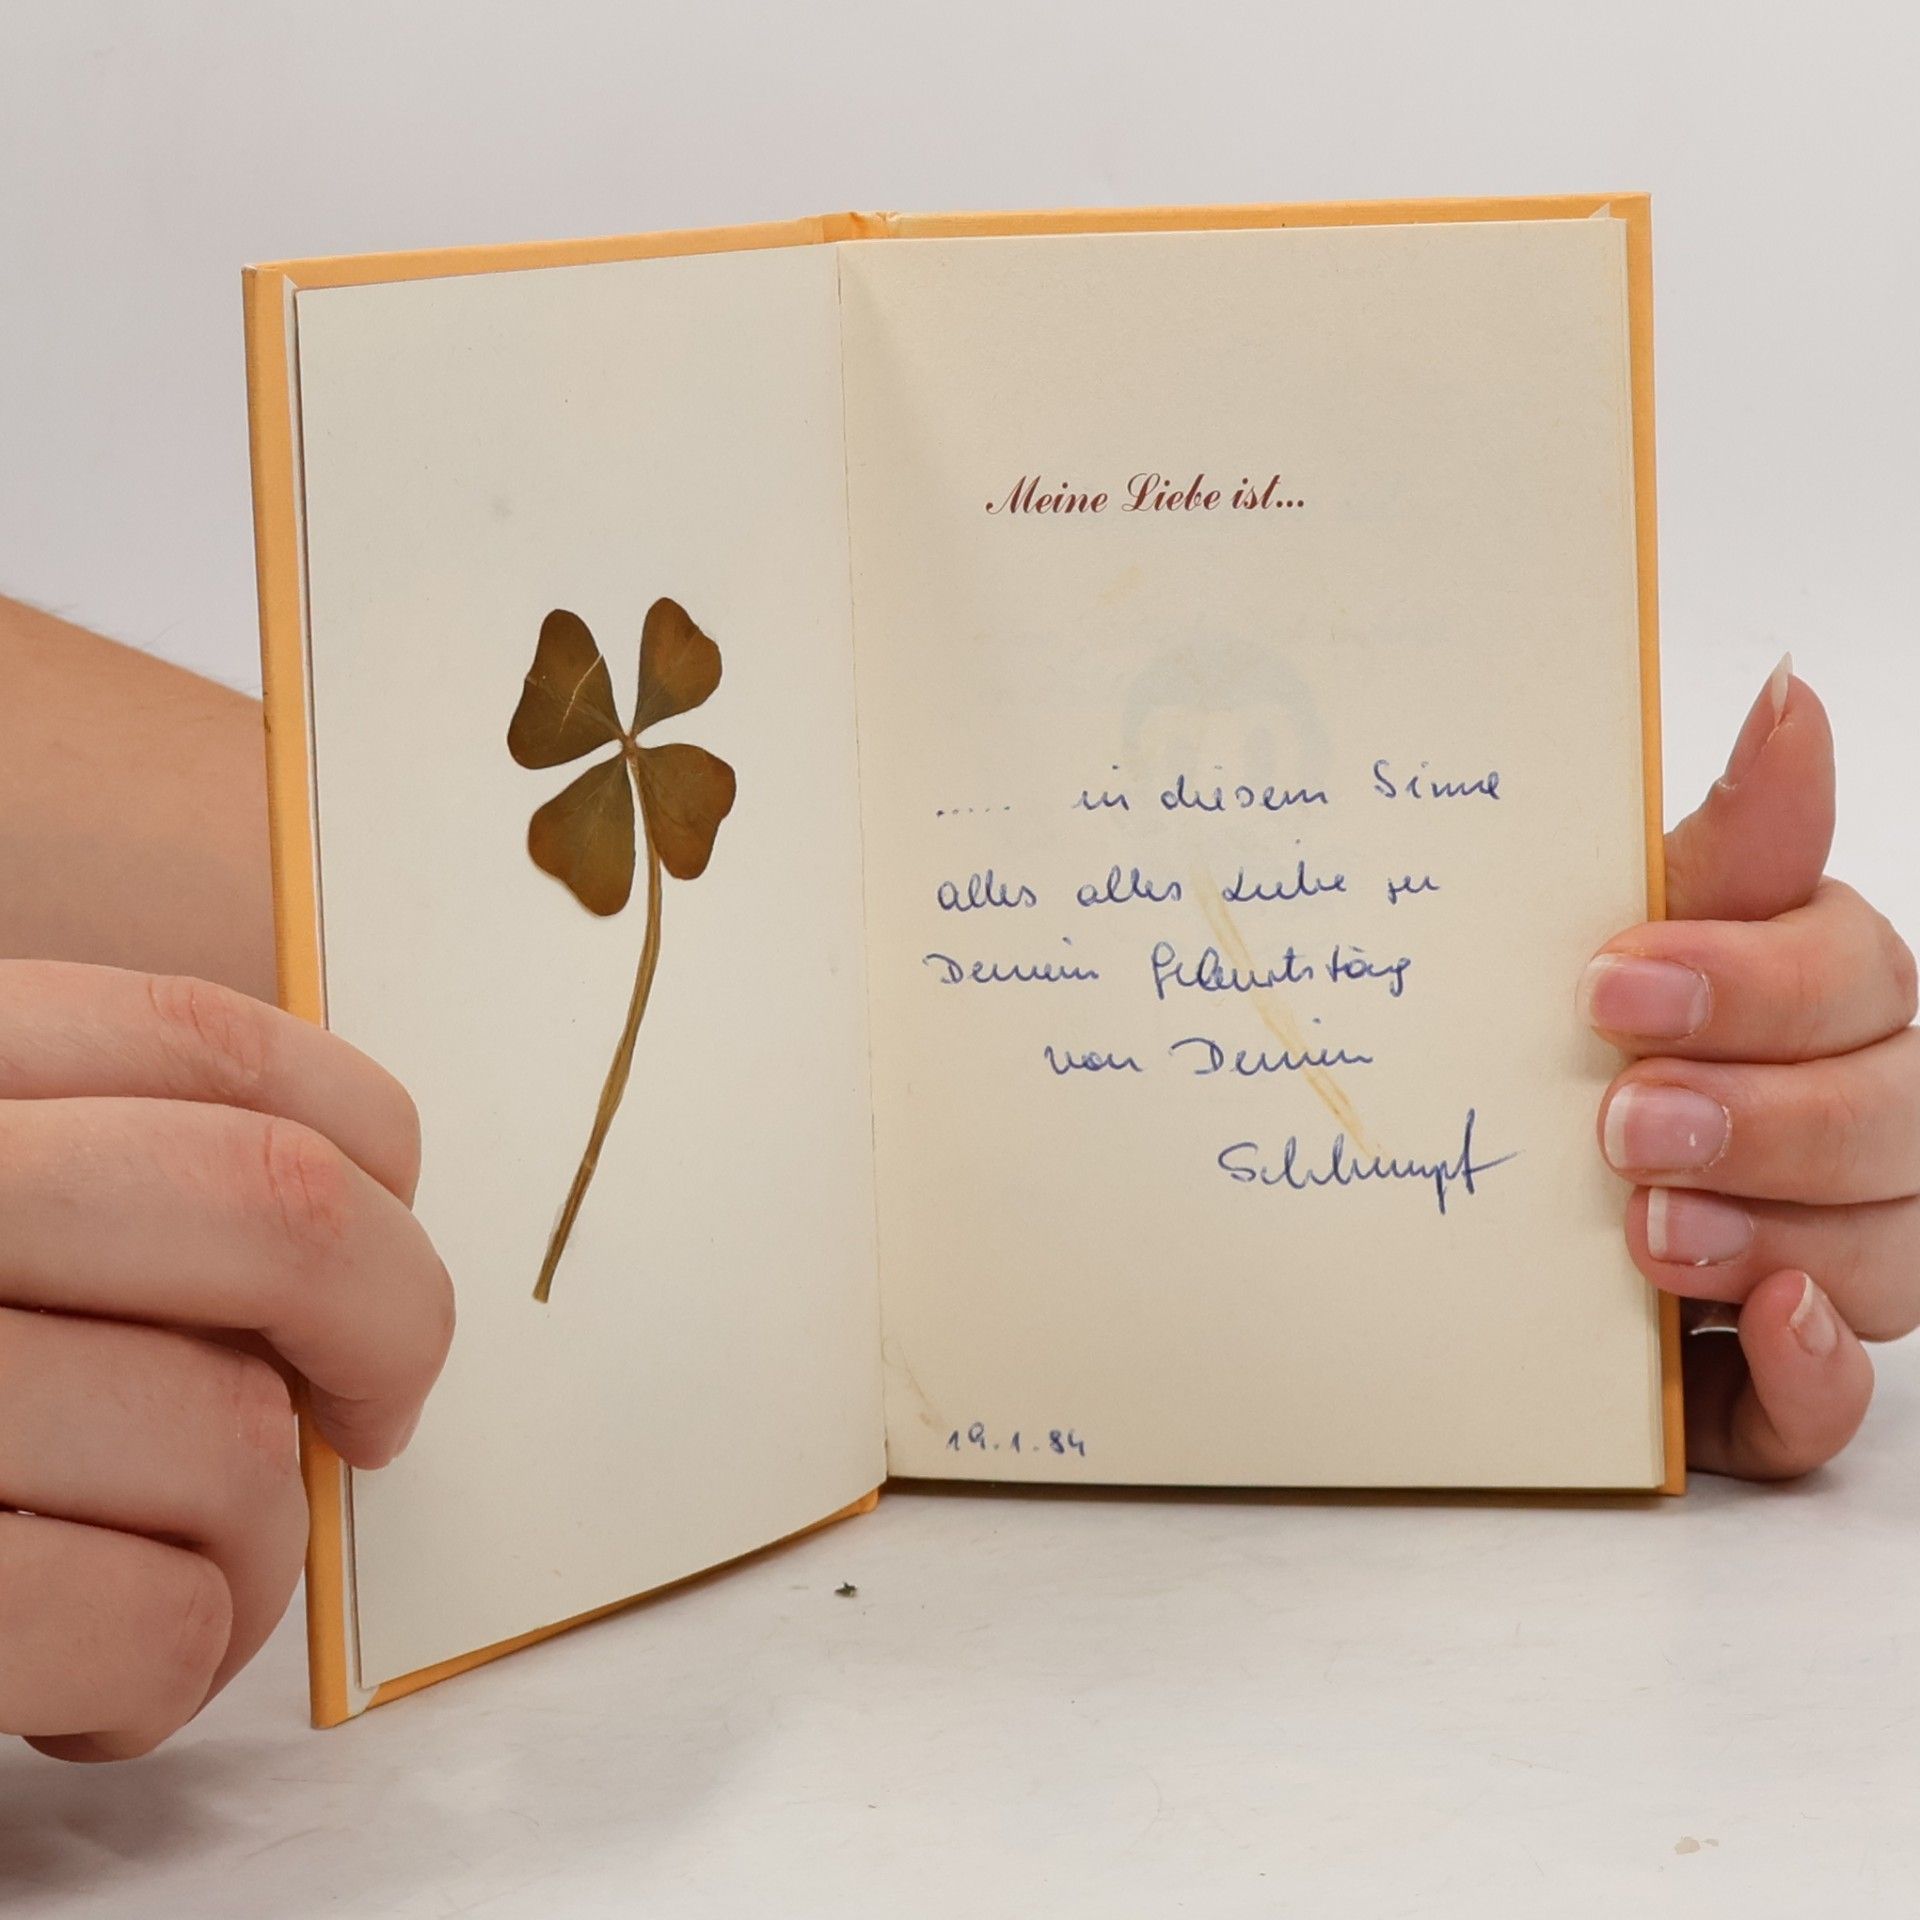 Meine Liebe ist...
..... in diesem Sinne
alles alles Liebe zu
Deinem Geburtstag
von Deinem
Schlumpf
19.1.84